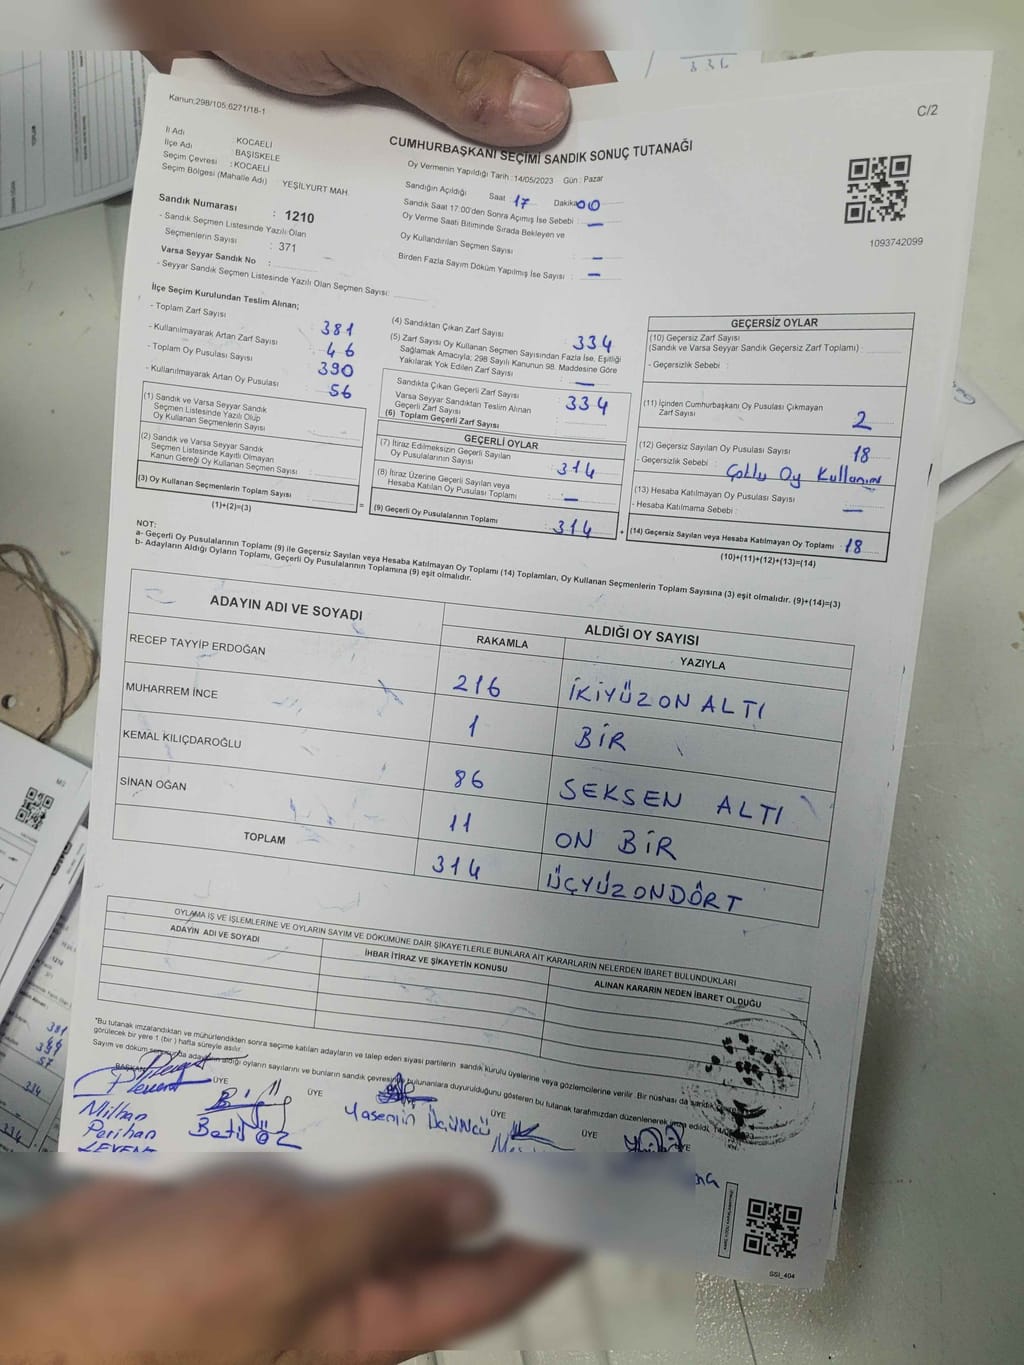 336
Kanun;298/105;6271/18-1
C/2
CUMHURBAŞKANI SEÇİMİ SANDIK SONUÇ TUTANAĞI
İl Adı : KOCAELİ
İlçe Adı : BAŞİSKELE
Seçim Çevresi : KOCAELİ
Seçim Bölgesi (Mahalle Adı) YEŞİLYURT MAH.
Sandık Numarası : 1210
- Sandık Seçmen Listesinde Yazılı Olan
Seçmenlerin Sayısı : 371
Varsa Seyyar Sandık No :
- Seyyar Sandık Seçmen Listesinde Yazılı Olan Seçmen Sayısı:
Oy Vermenin Yapıldığı Tarih :14/05/2023 Gün : Pazar
Sandığın Açıldığı Saat 17 Dakika 00
Sandık Saat 17:00'den Sonra Açımış İse Sebebi : —
Oy Verme Saati Bitiminde Sırada Bekleyen ve
Oy Kullandırılan Seçmen Sayısı : —
Birden Fazla Sayım Döküm Yapılmış İse Sayısı : —
1093742099
İlçe Seçim Kurulundan Teslim Alınan;
- Toplam Zarf Sayısı 381
- Kullanılmayarak Artan Zarf Sayısı 46
- Toplam Oy Pusulası Sayısı 390
- Kullanılmayarak Artan Oy Pusulası 56
(1) Sandık ve Varsa Seyyar Sandık
Seçmen Listesinde Yazılı Olup
Oy Kullanan Seçmenlerin Sayısı
(2) Sandık ve Varsa Seyyar Sandık
Seçmen Listesinde Kayıtlı Olmayan
Kanun Gereği Oy Kullanan Seçmen Sayısı :
(3) Oy Kullanan Seçmenlerin Toplam Sayısı
(1)+(2)=(3)
=
(4) Sandıktan Çıkan Zarf Sayısı 334
(5) Zarf Sayısı Oy Kullanan Seçmen Sayısından Fazla İse, Eşitliği
Sağlamak Amacıyla; 298 Sayılı Kanunun 98. Maddesine Göre
Yakılarak Yok Edilen Zarf Sayısı : —
Sandıkta Çıkan Geçerli Zarf Sayısı
Varsa Seyyar Sandıktan Teslim Alınan
Geçerli Zarf Sayısı 334
(6) Toplam Geçerli Zarf Sayısı
GEÇERLİ OYLAR
(7) İtiraz Edilmeksizin Geçerli Sayılan
Oy Pusulalarının Sayısı : 314
(8) İtiraz Üzerine Geçerli Sayılan veya
Hesaba Katılan Oy Pusulası Toplamı : —
(9) Geçerli Oy Pusulalarının Toplamı : 314
+
GEÇERSİZ OYLAR
(10) Geçersiz Zarf Sayısı
(Sandık ve Varsa Seyyar Sandık Geçersiz Zarf Toplamı) :
- Geçersizlik Sebebi :
(11) İçinden Cumhurbaşkanı Oy Pusulası Çıkmayan
Zarf Sayısı 2
(12) Geçersiz Sayılan Oy Pusulası Sayısı 18
- Geçersizlik Sebebi : Çoklu Oy Kullanımı
(13) Hesaba Katılmayan Oy Pusulası Sayısı
- Hesaba Katılmama Sebebi : —
(14) Geçersiz Sayılan veya Hesaba Katılmayan Oy Toplamı : 18
(10)+(11)+(12)+(13)=(14)
NOT:
a- Geçerli Oy Pusulalarının Toplamı (9) ile Geçersiz Sayılan veya Hesaba Katılmayan Oy Toplamı (14) Toplamları, Oy Kullanan Seçmenlerin Toplam Sayısına (3) eşit olmalıdır. (9)+(14)=(3)
b- Adayların Aldığı Oyların Toplamı, Geçerli Oy Pusulalarının Toplamına (9) eşit olmalıdır.
ADAYIN ADI VE SOYADI ALDIĞI OY SAYISI
RAKAMLA YAZIYLA
RECEP TAYYİP ERDOĞAN 216 İKİYÜZ ON ALTI
MUHARREM İNCE 1 BİR
KEMAL KILIÇDAROĞLU 86 SEKSEN ALTI
SİNAN OĞAN 11 ON BİR
TOPLAM 314 ÜÇYÜZONDÖRT
OYLAMA İŞ VE İŞLEMLERİNE VE OYLARIN SAYIM VE DÖKÜMÜNE DAİR ŞİKAYETLERLE BUNLARA AİT KARARLARIN NELERDEN İBARET BULUNDUKLARI
ADAYIN ADI VE SOYADI İHBAR İTİRAZ VE ŞİKAYETİN KONUSU ALINAN KARARIN NEDEN İBARET OLDUĞU
*Bu tutanak imzalandıktan ve mühürlendikten sonra seçime katılan adayların ve talep eden siyasi partilerin sandık kurulu üyelerine veya gözlemcilerine verilir. Bir nüshası da sandık
görülecek bir yere 1 (bir) hafta süreyle asılır.
Sayım ve döküm adayların aldığı oyların sayılarını ve bunların sandık çevresinde bulunanlara duyurulduğunu gösteren bu tutanak tarafımızdan düzenlenerek imza edildi.
BAŞKAN ÜYE ÜYE ÜYE ÜYE
Milhan
Perihan
LEVENT
Betül ÖZ
Yasemin Üçüncü
SSİ_404